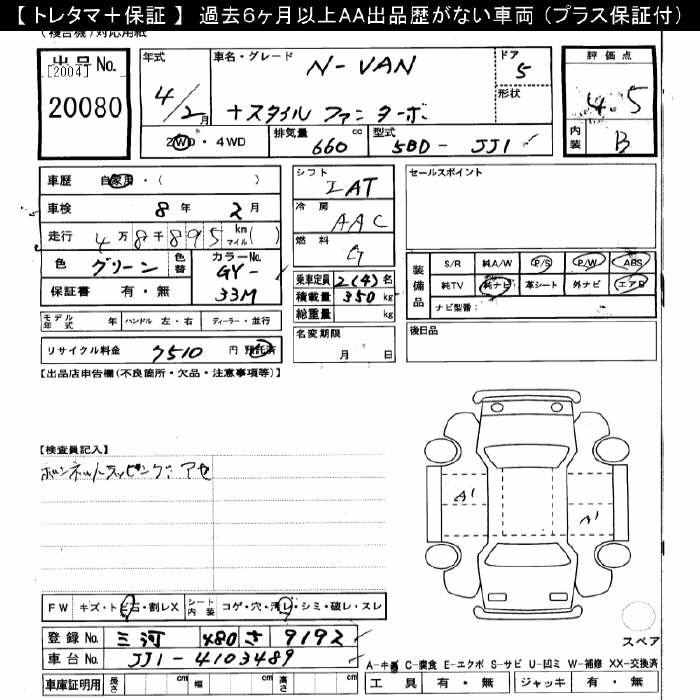 【 トレタマ＋保証 】 過去６ヶ月以上AA出品歴がない車両 （プラス保証付）
(複合機) 対応用紙
出品No. [2004] 20080
年式 4/2月
車名・グレード N-VAN
+スタイル ファン ターボ
ドア 5
形状
評価点 4.5
内装 B
2WD・4WD 排気量 660 cc 型式 5BD-JJ1
車歴 自家用・( )
車検 8年 2月
走行 4万8千895 km マイル( )
色 グリーン 色替 カラーNo. GY-33M
保証書 有・無
シフト IAT
冷房 AAC
燃料 G
乗車定員 2(4) 名
積載量 350 kg
総重量 kg
名変期限 月 日
セールスポイント
装備品 S/R 純A/W P/S P/W ABS
純TV 純ナビ 革シート 外ナビ エアB
ナビ型番：
後日品
モデル年式 年 ハンドル 左・右 ディーラー・並行
リサイクル料金 7510 円 預託済
【出品店申告欄(不良箇所・欠品・注意事項等)】
【検査員記入】
ボンネットラッピング：アセ
A1
A1
FW キズ・トビ石・割レX シート内装 コゲ・穴・汚レ・シミ・破レ・スレ
スペア
登録No. 三河 480 さ 9192
車台No. JJ1-4103489
A-キズ C-腐食 E-エクボ S-サビ U-凹ミ W-補修 XX-交換済
車庫証明用 長さ cm 幅 cm 高さ cm
工具 有・無 ジャッキ 有・無